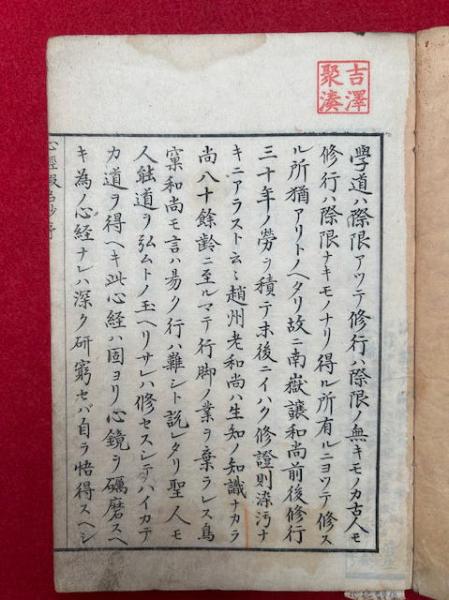 吉澤
聚湊
學道ハ際限アツテ修行ハ際限ノ無キモノカ古人モ
修行ハ際限ナキモノナリ得ル所有ルニヨツテ修ス
ル所猶アリトノヘタリ故ニ南嶽讓和尚前後修行
三十年ノ勞ヲ積テ末後ニイハク修證則染汚ナ
キニアラスト云々趙州老和尚ハ生知ノ知識ナカラ
尚八十餘齡ニ至ルマテ行脚ノ業ヲ棄ラレス鳥
窠和尚モ言ハ易ク行ハ難シト説レタリ聖人モ
人能道ヲ弘ムトノ玉ヘリサレハ修セスシテハイカテ
カ道ヲ得ヘキ此心経ハ固ヨリ心鏡ヲ礪磨スヘ
キ為ノ心経ナレハ深ク研窮セバ自ラ悟得スヘシ
心經